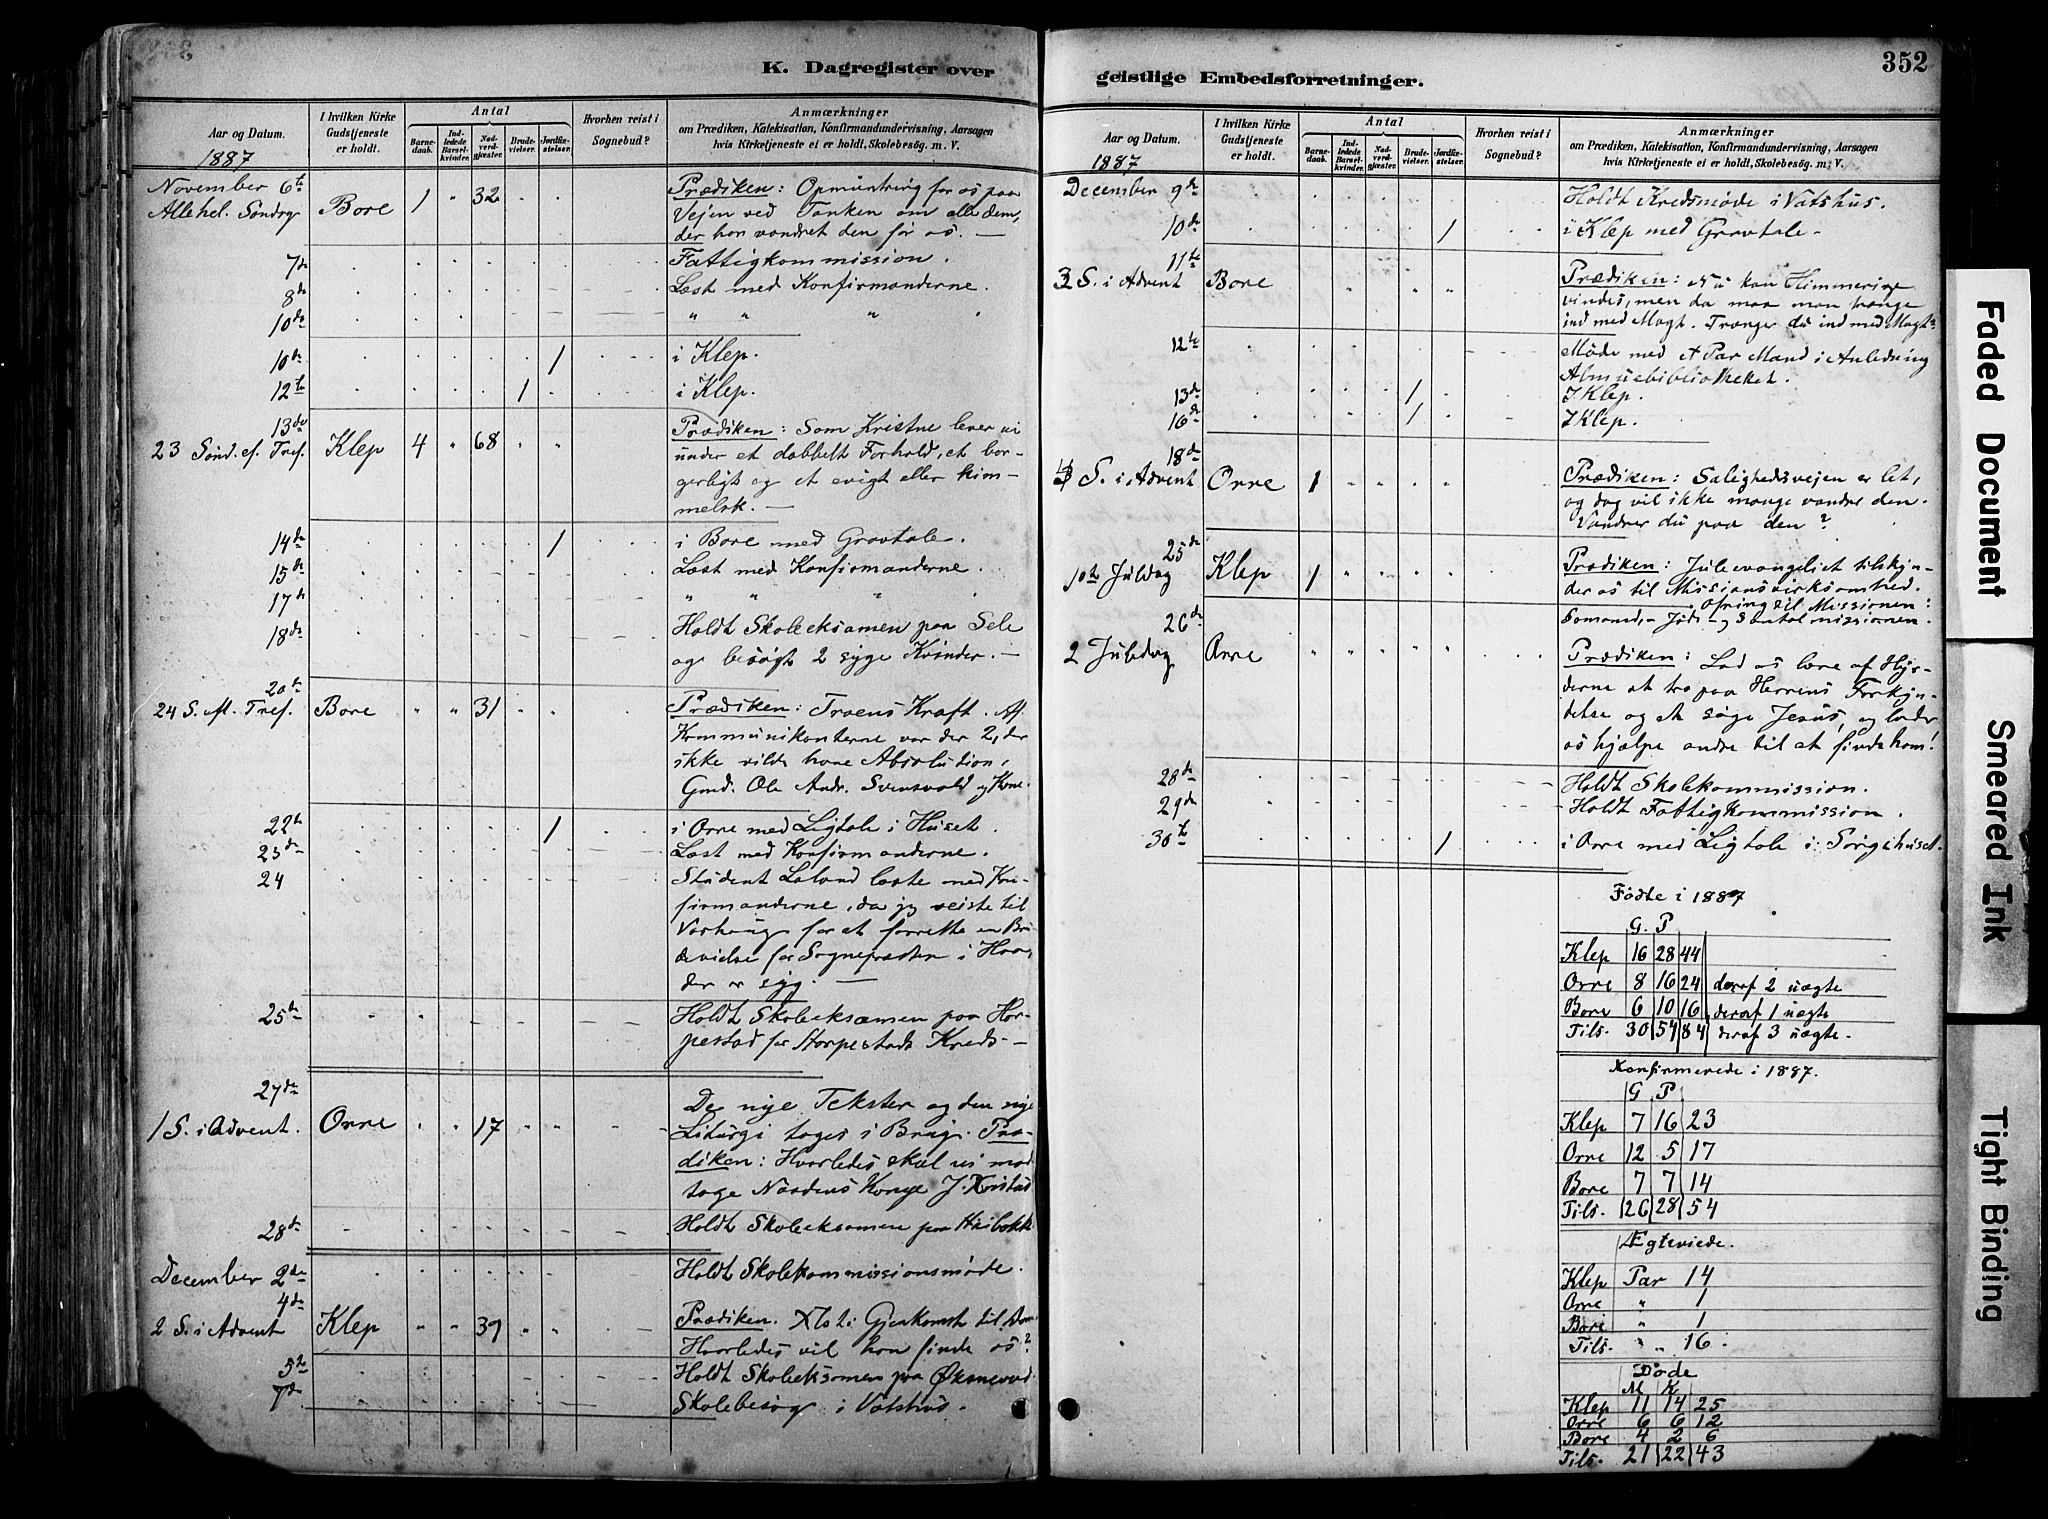 K. Dagregister over
Aar og Datum.
1887
I hvilken Kirke Gudstjeneste er holdt.
Antal
Barne-daab.
Ind-ledede Barsel-kvinder.
Nad-verd-gjæster.
Brude-vielser.
Jordfæ-stelser.
Hvorhen reist i Sognebud?
Anmærkninger
om Prædiken, Katekisation, Konfirmandundervisning, Aarsagen
hvis Kirketjeneste ei er holdt, Skolebesög. m. V.
November 6te
Allehel. Søndag Bore 1 " 32 Prædiken: Opmuntring for os paa
Vejen ved Tanken om alle dem,
der har vandret den før os. —
7de Fattigkommission.
8de Læst med Konfirmanderne.
10de " " "
10de 1 i Klep.
12te 1 i Klep.
13de
23 Sønd. ef. Tref. Klep 4 " 68 " " Prædiken: Som Kristne lever vi
under et dobbelt Forhold, et bor-
gerligt og et evigt eller him-
melsk. —
14de 1 i Bore med Gravtale.
15de Læst med Konfirmanderne.
17de " " "
18de Holdt Skoleeksamen paa Sele
og besøgt 2 syge Kvinder. —
20de
24 S. eft. Tref. Bore " " 31 Prædiken: Troens Kraft. Af
Kommunikanterne var der 2, der
ikke vilde have Absolution,
Gmd. Ole Andr. Svensvold og Kone.
22de 1 i Orre med Ligtale i Huset.
23de Læst med Konfirmanderne.
24 Student Laland læste med Kon-
firmanderne, da jeg reiste til
Varhaug for at forrette en Bru-
devielse for Sognepræsten i Haa,
der er syg. —
25de Holdt Skoleeksamen paa Hor-
pestad for Horpestads Kreds. —
27de
1 S. i Advent. Orre " " 17 " " De nye Tekster og den nye
Liturgi tages i Brug. Præ-
diken: Hvorledes skal vi mod-
tage Naadens Konge J. Kristus
28de Holdt Skoleeksamen paa
December 2de Holdt Skolekommissionsmøde.
4de
2 S. i Advent Klep " " 37 " " Prædiken. Xsti Gjenkomst til Dom.
Hvorledes vil han finde os?
5te Holdt Skoleeksamen paa Øksnevad.
7de Skolebesøg i Vatshus.
geistlige Embedsforretninger.
352
Aar og Datum.
1887
I hvilken Kirke Gudstjeneste er holdt.
Antal
Barne-daab.
Ind-ledede Barsel-kvinder.
Nad-verd-gjæster.
Brude-vielser.
Jordfæ-stelser.
Hvorhen reist i Sognebud?
Anmærkninger
om Prædiken, Katekisation, Konfirmandundervisning, Aarsagen
hvis Kirketjeneste ei er holdt, Skolebesög. m. V.
December 9de Holdt Kredsmøde i Vatshus.
10de 1 i Klep med Gravtale.
11te
3 S. i Advent Bore " " " " Prædiken: Nu kan Himmerige
vindes, men da maa man trænge
ind med Magt. Trænger du ind med Magt?
12te Møde med et Par Mænd i Anledning
Almuebibliotheket.
13de 1 I Klep.
16de 1 I Klep.
18de
4 S. i Advent Orre 1 " " " " Prædiken: Salighedsvejen er let,
og dog vil ikke mange vandre den.
Vandrer du paa den?
25de
1ste Juledag Klep 1 " " " " Prædiken: Juleevangeliet tilskyn-
der os til Missionsvirksomhed.
Ofring til Missionen:
Sømand,- Jøde- og Santalmissionen.
26de
2 Juledag Orre " " " " " Prædiken: Lad os lære af Hyr-
derne at tro paa Herrens Forkyn-
delse og at søge Jesus, og lader
os hjælpe andre til at finde ham!
28de Holdt Skolekommission.
29de Holdt Fattigkommission.
30te 1 i Orre med Ligtale i Sørgehuset.
Fødte i 1887
G. P.
Klep 16 28 44
Orre 8 16 24 deraf 2 uægte
Bore 6 10 16 deraf 1 uægte
Tils. 30 54 84 deraf 3 uægte.
Konfirmerede i 1887.
G P
Klep 7 16 23
Orre 12 5 17
Bore 7 7 14
Tils. 26 28 54
Ægteviede.
Klep Par 14
Orre " 1
Bore " 1
Tils. " " 16
Døde
M K
Klep 11 14 25
Orre 6 6 12
Bore 4 2 6
Tils. 21 22 43
Faded Document
Smeared Ink
Tight Binding